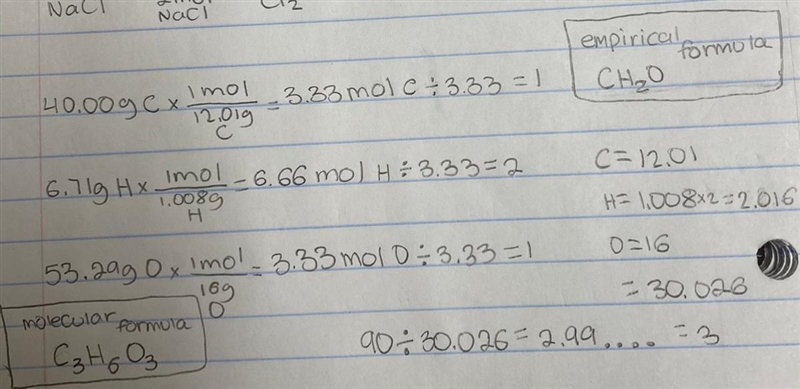 NaCl NaCl Cl2
empirical formula
CH₂O
40.00g C × 1mol / 12.01g C = 3.33 mol C ÷ 3.33 = 1
6.71g H × 1mol / 1.008g H = 6.66 mol H ÷ 3.33 = 2
53.29g O × 1mol / 16g O = 3.33 mol O ÷ 3.33 = 1
C = 12.01
H = 1.008×2 = 2.016
O = 16
= 30.026
90 ÷ 30.026 = 2.99.... = 3
molecular formula
C₃H₆O₃